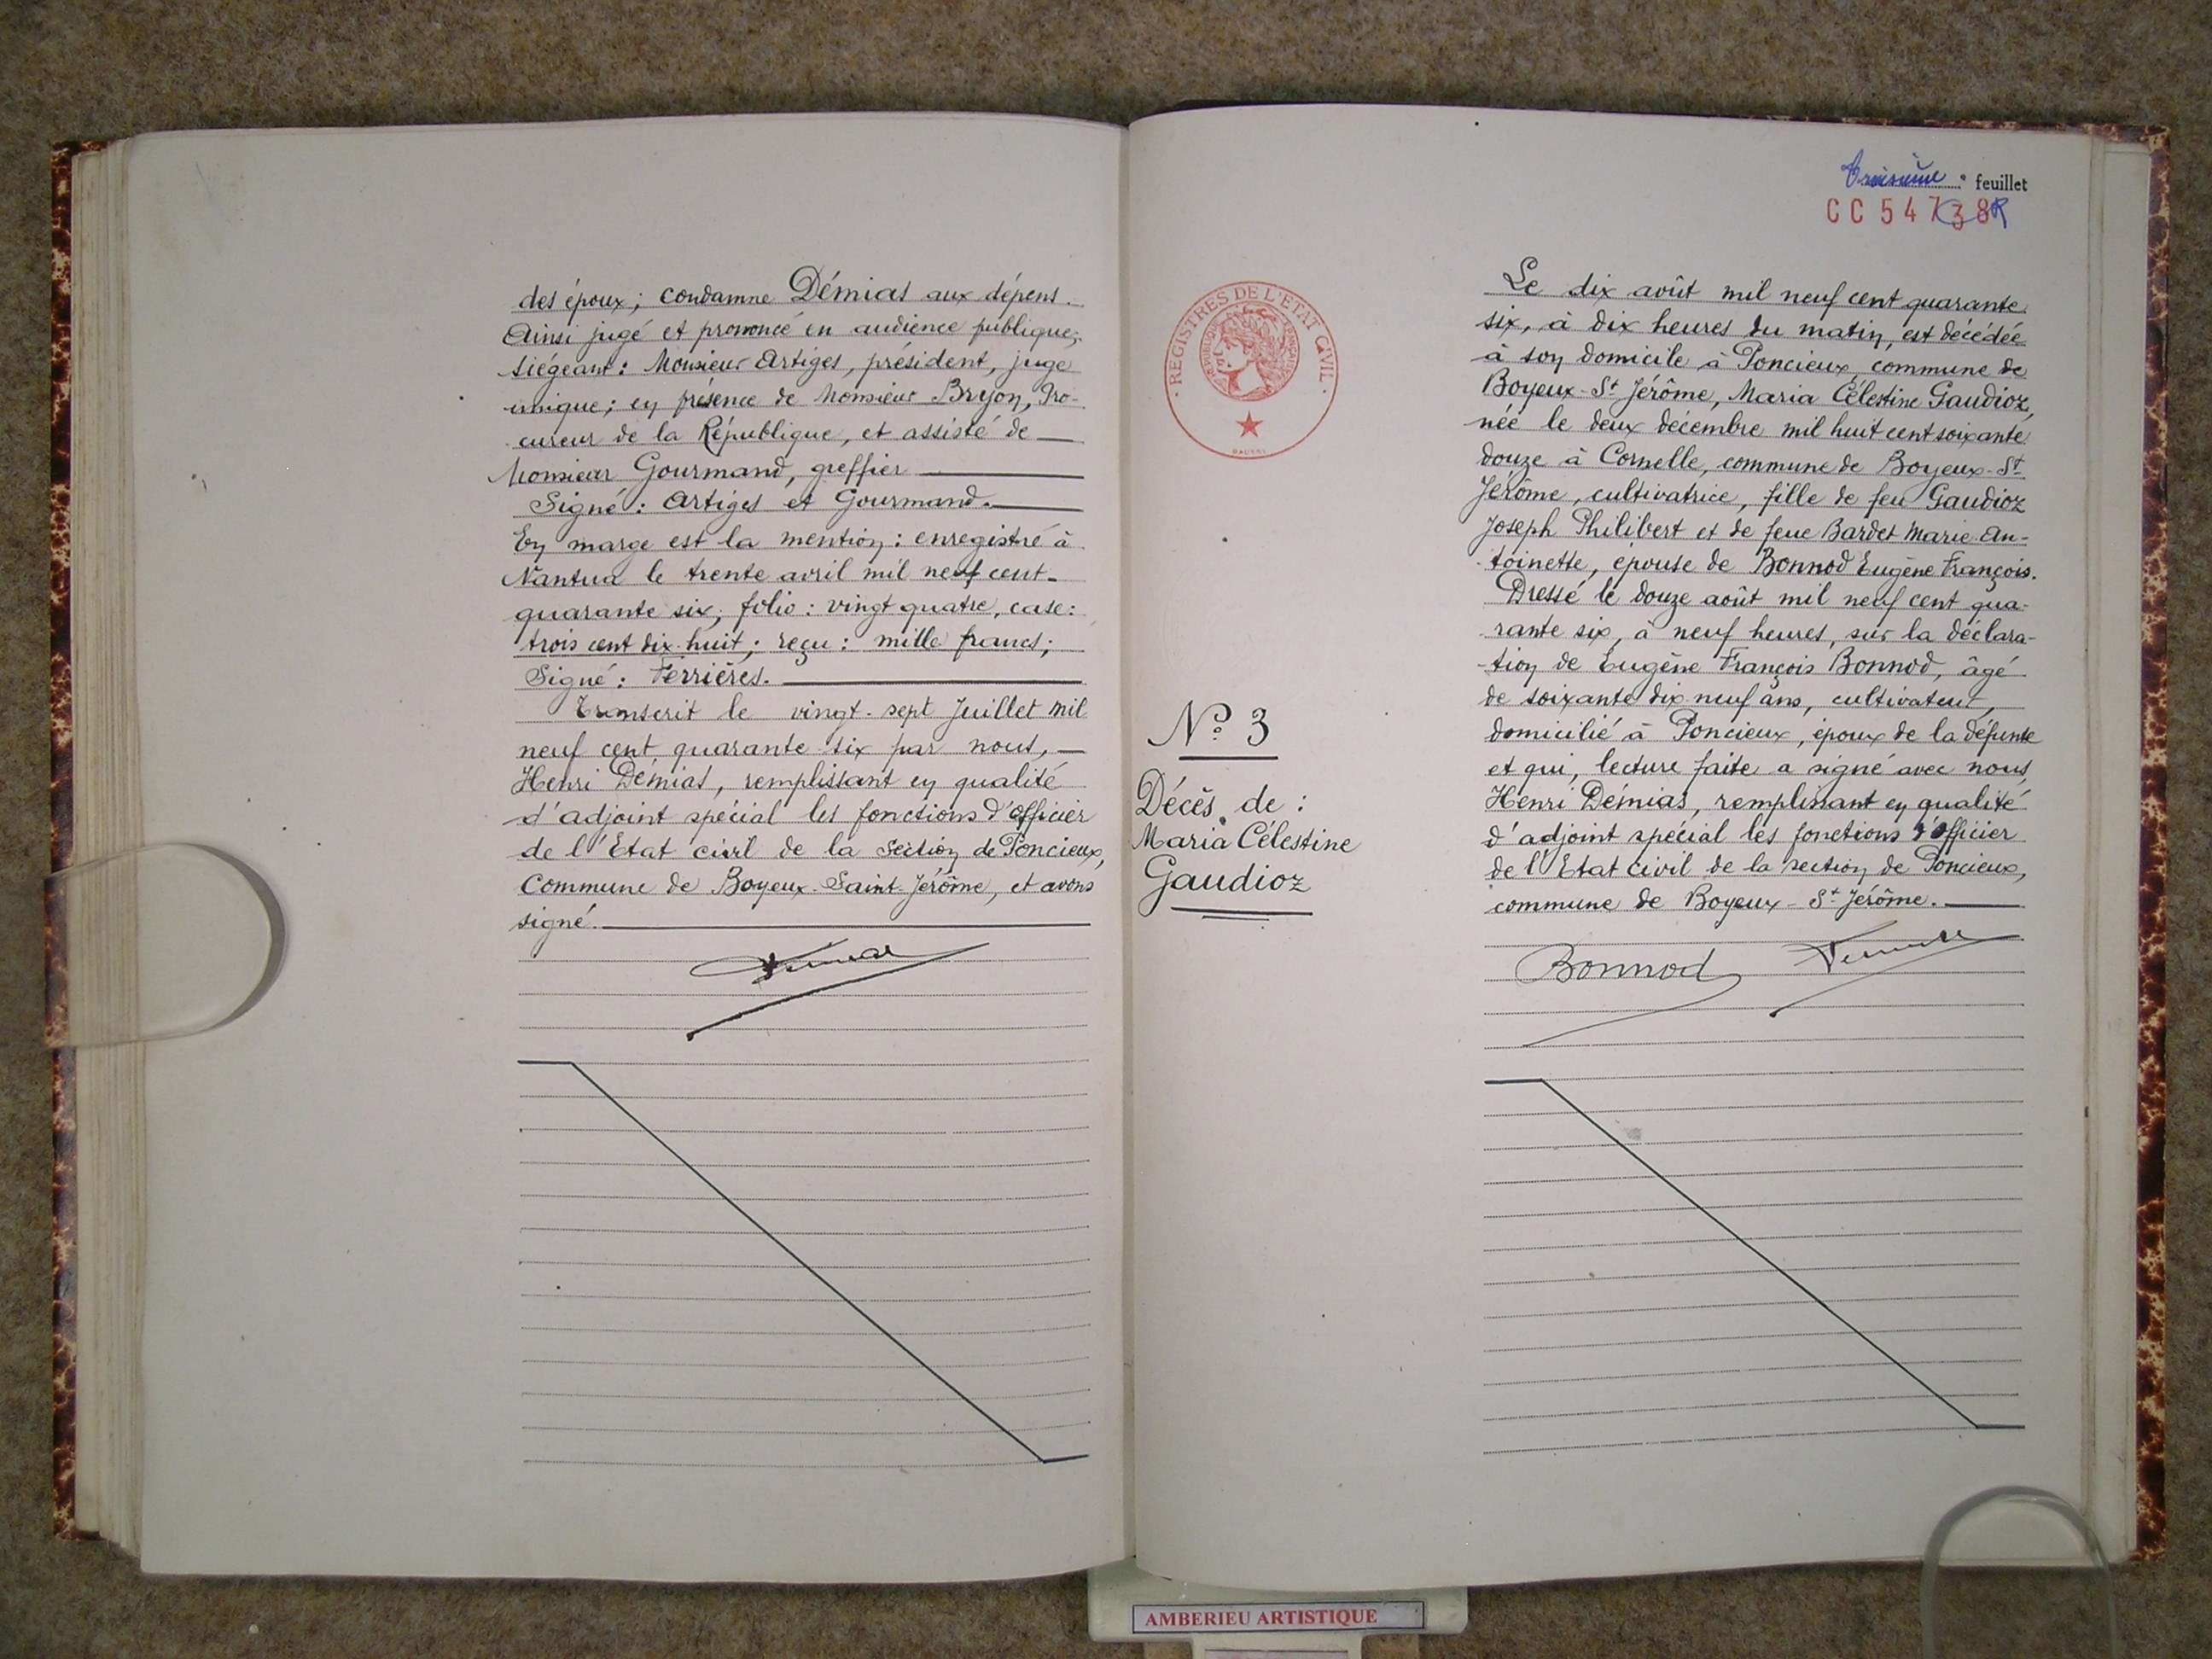 des époux; condamne Démias aux dépens.
Ainsi jugé et prononcé en audience publique;
siégeant: Monsieur Artiges, président, juge
unique; en présence de Monsieur Bryon, Pro-
cureur de la République, et assisté de
Monsieur Gourmand, greffier
Signé: Artiges et Gourmand.
En marge est la mention: enregistré à
Nantua le trente avril mil neuf cent-
quarante six; folio: vingt quatre, case:
trois cent dix-huit; reçu: mille francs;
Signé: Ferrières.
Transcrit le vingt-sept Juillet mil
neuf cent quarante six par nous,
Henri Démias, remplissant en qualité
d'adjoint spécial les fonctions d'officier
de l'Etat civil de la Section de Poncieux,
Commune de Boyeux-Saint-Jérôme, et avons
signé.
REGISTRES DE L'ETAT CIVIL
REPUBLIQUE FRANÇAISE
N° 3
Décès de:
Maria Célestine
Gaudioz
Troisième feuillet
CC 54738
Le dix août mil neuf cent quarante
six, à dix heures du matin, est décédée
à son domicile à Poncieux, commune de
Boyeux-St Jérôme, Maria Célestine Gaudioz,
née le deux décembre mil huit cent soixante
douze à Cornelle, commune de Boyeux-St
Jérôme, cultivatrice, fille de feu Gaudioz
Joseph Philibert et de feue Bardet Marie An-
toinette, épouse de Bonnod Eugène François.
Dressé le douze août mil neuf cent qua-
rante six, à neuf heures, sur la déclara-
-tion de Eugène François Bonnod, âgé
de soixante dix neuf ans, cultivateur,
domicilié à Poncieux, époux de la défunte
et qui, lecture faite a signé avec nous,
Henri Démias, remplissant en qualité
d'adjoint spécial les fonctions d'officier
de l'Etat civil de la section de Poncieux,
commune de Boyeux-St Jérôme.
Bonnod
AMBERIEU ARTISTIQUE